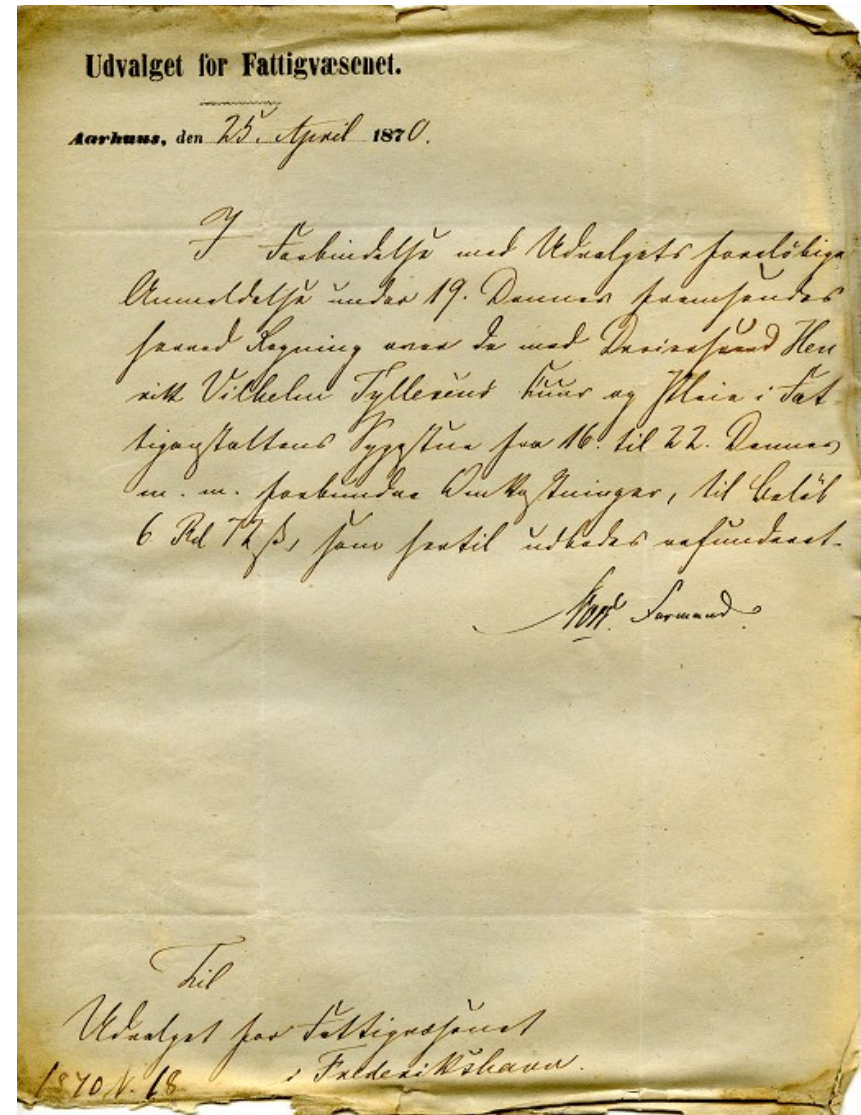 Udvalget for Fattigvæsenet.
Aarhuus, den 25. April 1870.
I Forbindelse med Udvalgets foreløbige
Anmeldelse under 19. Dennes fremsendes
herved Regning over de med Dreiersvend Hen
rik Vilhelm Tyllesens Kuur og Pleie i Fat
tiganstaltens Sygestue fra 16. til 22. Dennes
m. m. forbundne Omkostninger, til Beløb
6 Rd 72 ß, som hertil udbedes refunderet.
Formand.
Til
Udvalget for Fattigvæsenet
i Frederikshavn.
1870 N. 18